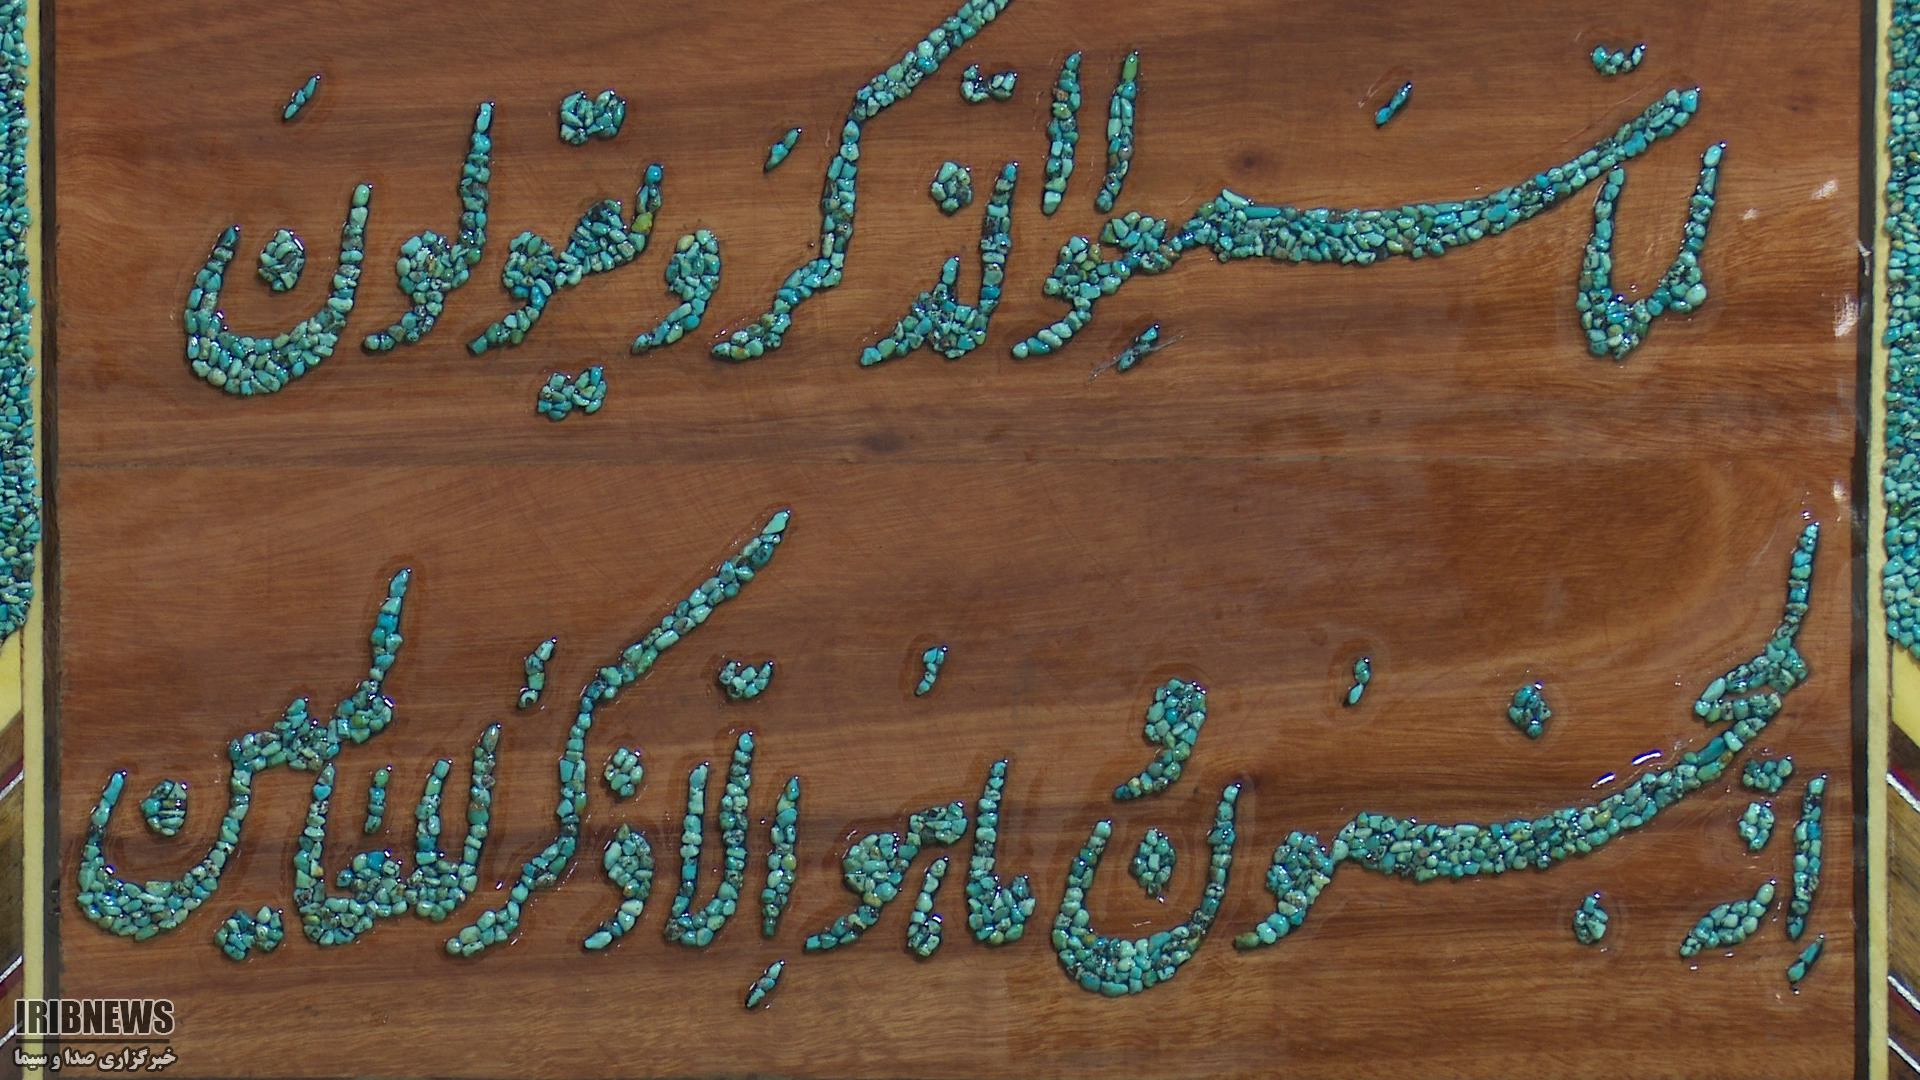 لمّا سَمِعوا الذّکرَ و یقولونَ
اِنّه لمجنونٌ و ما هُوَ اِلّا ذکرٌ للعالمین
IRIBNEWS
خبرگزاری صدا و سیما